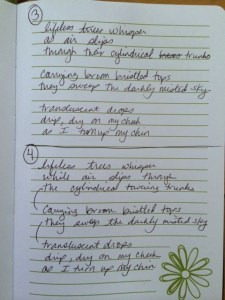 3
lifeless trees whisper
as air slips
through their cylindrical trunks
carrying broom bristled tops
they sweep the darkly misted sky
translucent drops
drip, dry on my cheek
as I turn up my chin
4
lifeless trees whisper
while air slips through
the cylindrical towering trunks
carrying broom bristled tops
they sweep the darkly misted sky
translucent drops
drip, dry on my cheek
as I turn up my chin